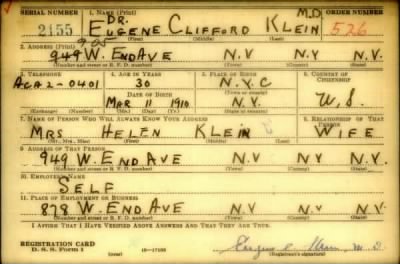 SERIAL NUMBER 1. NAME (Print) ORDER NUMBER
2155 DR. EUGENE CLIFFORD KLEIN M.D 526
(First) (Middle) (Last)
2. ADDRESS (Print)
949 W. END AVE N.Y N.Y N.Y.
(Number and street or R. F. D. number) (Town) (County) (State)
3. TELEPHONE 4. AGE IN YEARS 5. PLACE OF BIRTH 6. COUNTRY OF CITIZENSHIP
ACA 2-0401 30 N.Y.C
DATE OF BIRTH
MAR 11 1910 N.Y. U.S.
(Exchange) (Number) (Mo.) (Day) (Yr.) (State or country)
7. NAME OF PERSON WHO WILL ALWAYS KNOW YOUR ADDRESS 8. RELATIONSHIP OF THAT PERSON
MRS HELEN KLEIN WIFE
(Mr., Mrs., Miss) (First) (Middle) (Last)
9. ADDRESS OF THAT PERSON
949 W. END AVE N.Y N.Y N.Y.
(Number and street or R. F. D. number) (Town) (County) (State)
10. EMPLOYER'S NAME
SELF
11. PLACE OF EMPLOYMENT OR BUSINESS
878 W. END AVE N.Y N.Y N.Y.
(Number and street or R. F. D. number) (Town) (County) (State)
I AFFIRM THAT I HAVE VERIFIED ABOVE ANSWERS AND THAT THEY ARE TRUE.
REGISTRATION CARD
D. S. S. FORM 1 (over) 16-17105 (Registrant's signature)